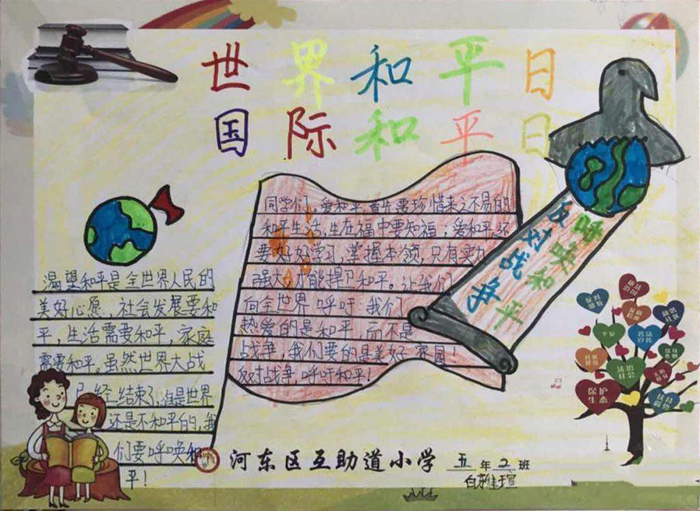 世界和平日
国际和平日
同学们,爱和平,首先要珍惜来之不易的
和平生活,生在福中要知福;爱和平,还
要好好学习,掌握本领,只有实力
强大才能捍卫和平。让我们
向全世界呼吁,我们
热爱的是和平,而不是
战争,我们要的是美好家园!
反对战争,呼吁和平!
呼唤和平
反对战争
渴望和平是全世界人民的
美好心愿,社会发展要和
平,生活需要和平,家庭
需要和平,虽然世界大战
已经结束了,但是世界
还是不和平的,我
们要呼唤和
平!
保护
生态
河东区互助道小学 五年2班